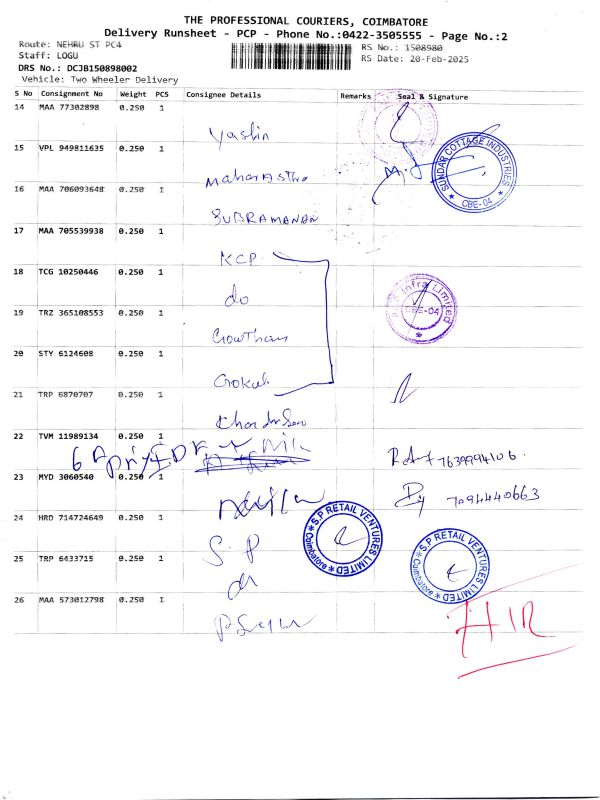 THE PROFESSIONAL COURIERS, COIMBATORE
Delivery Runsheet - PCP - Phone No.:0422-3505555 - Page No.:2
Route: NEHRU ST PC4
Staff: LOGU
DRS No.: DCJB150898002
Vehicle: Two Wheeler Delivery
RS No.: 1508980
RS Date: 20-Feb-2025
S No Consignment No Weight PCS Consignee Details Remarks Seal & Signature
14 MAA 77302898 0.250 1
Yashin
15 VPL 949811635 0.250 1
Maharastra
SUNDAR COTTAGE INDUSTRIES
CBE-04
16 MAA 706093648 0.250 1
SUBRAMANIAN
17 MAA 705539938 0.250 1
KCP
18 TCG 10250446 0.250 1
do
Infra Limited
CBE-04
19 TRZ 365108553 0.250 1
Gowtham
20 STY 6124608 0.250 1
Gokul
21 TRP 6870707 0.250 1
22 TVM 11989134 0.250 1
7639994106
23 MYD 3060540 0.250 1
7094440663
24 HRD 714724649 0.250 1
S.P
S.P RETAIL VENTURES LIMITED
Coimbatore
25 TRP 6433715 0.250 1
S.P RETAIL VENTURES LIMITED
Coimbatore
26 MAA 573012798 0.250 1